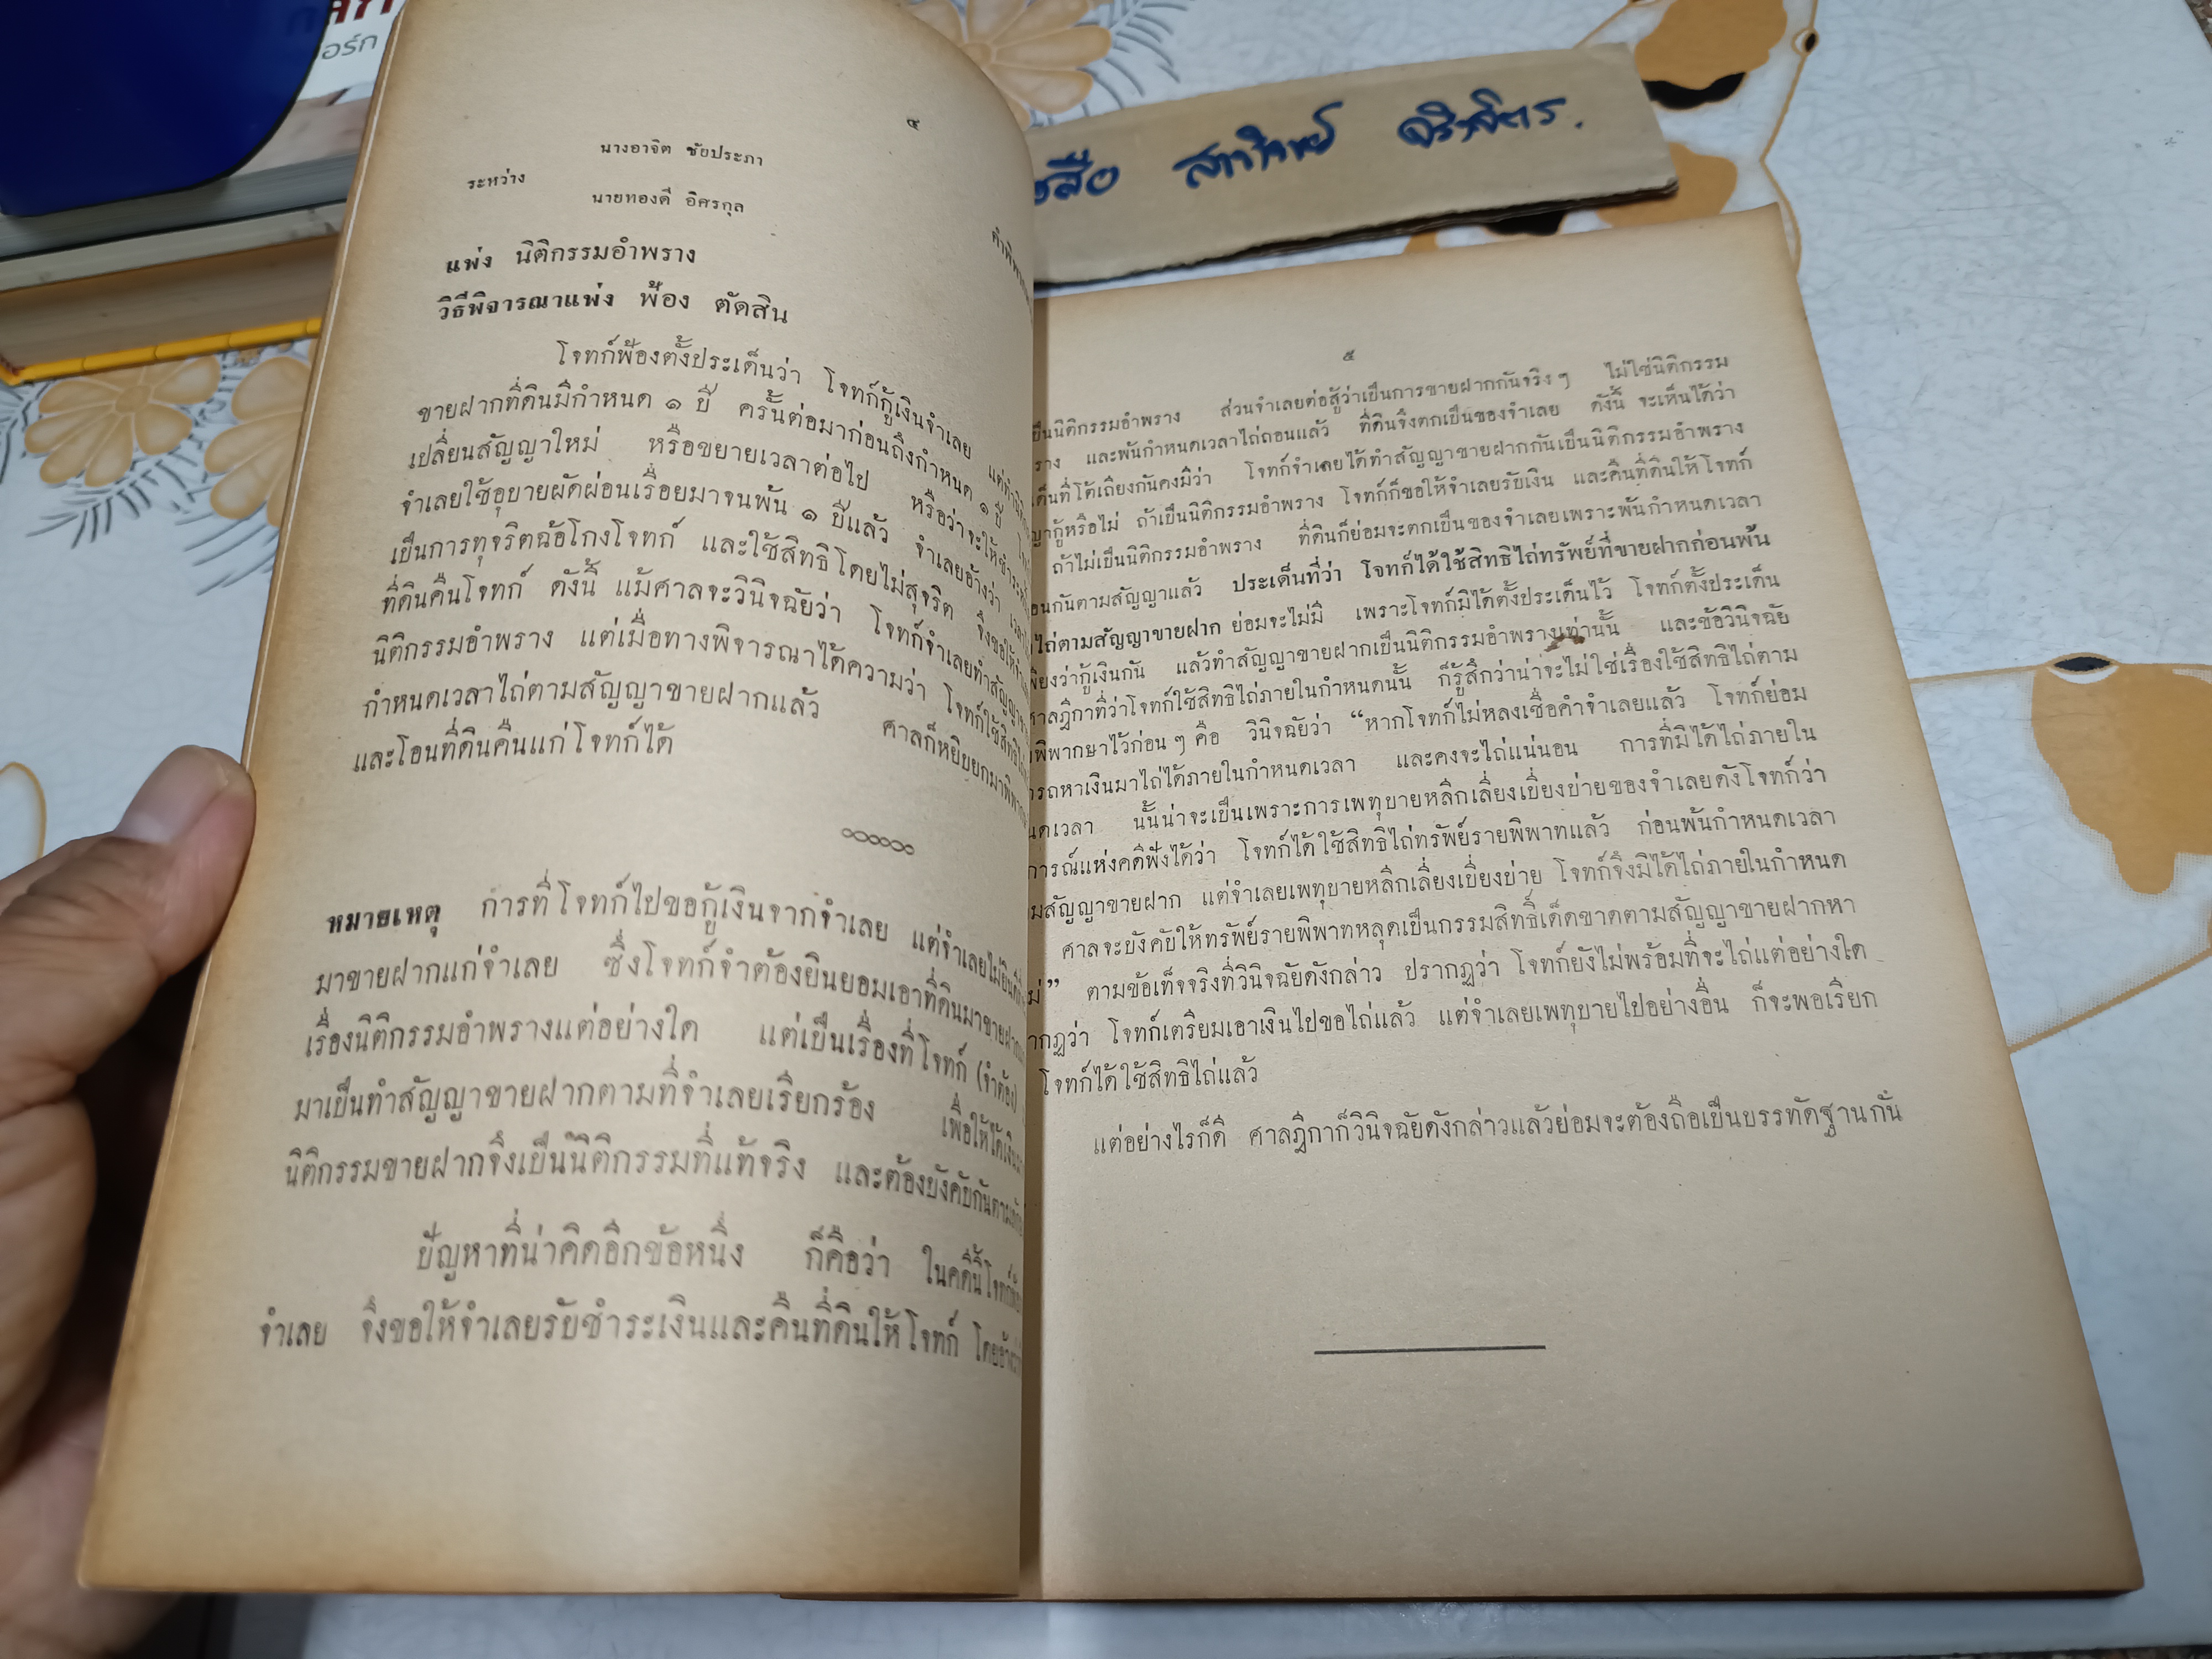 ๔
นางอาจิต ชัยประภา
ระหว่าง
นายทองดี อิศรกุล
แพ่ง นิติกรรมอำพราง
วิธีพิจารณาแพ่ง ฟ้อง ตัดสิน
โจทก์ฟ้องตั้งประเด็นว่า โจทก์กู้เงินจำเลย
ขายฝากที่ดินมีกำหนด ๑ ปี ครั้นต่อมาก่อนถึงกำหนด ๑ ปี
เปลี่ยนสัญญาใหม่ หรือขยายเวลาต่อไป หรือว่าจะให้ชำระ
จำเลยใช้อุบายผัดผ่อนเรื่อยมาจนพ้น ๑ ปีแล้ว จำเลยอ้างว่า
เป็นการทุจริตฉ้อโกงโจทก์ และใช้สิทธิโดยไม่สุจริต จึงขอให้
ที่ดินคืนโจทก์ ดังนี้ แม้ศาลจะวินิจฉัยว่า โจทก์จำเลยทำสัญญา
นิติกรรมอำพราง แต่เมื่อทางพิจารณาได้ความว่า โจทก์ใช้สิทธิไถ่
กำหนดเวลาไถ่ตามสัญญาขายฝากแล้ว ศาลก็หยิบยกมา
และโอนที่ดินคืนแก่โจทก์ได้
หมายเหตุ การที่โจทก์ไปขอกู้เงินจากจำเลย แต่จำเลยไม่ยินดี
มาขายฝากแก่จำเลย ซึ่งโจทก์จำต้องยินยอมเอาที่ดินมาขายฝาก
เรื่องนิติกรรมอำพรางแต่อย่างใด แต่เป็นเรื่องที่โจทก์ (จำต้อง)
มาเป็นทำสัญญาขายฝากตามที่จำเลยเรียกร้อง เพื่อให้ได้เงิน
นิติกรรมขายฝากจึงเป็นนิติกรรมที่แท้จริง และต้องบังคับกันตาม
ปัญหาที่น่าคิดอีกข้อหนึ่ง ก็คือว่า ในคดีนี้โจทก์
จำเลย จึงขอให้จำเลยรับชำระเงินและคืนที่ดินให้โจทก์
๕
เป็นนิติกรรมอำพราง ส่วนจำเลยต่อสู้ว่าเป็นการขายฝากกันจริง ๆ ไม่ใช่นิติกรรม
ราง และพ้นกำหนดเวลาไถ่ถอนแล้ว ที่ดินจึงตกเป็นของจำเลย ดังนี้ จะเห็นได้ว่า
ด็นที่โต้เถียงกันคงมีว่า โจทก์จำเลยได้ทำสัญญาขายฝากกันเป็นนิติกรรมอำพราง
ญากู้หรือไม่ ถ้าเป็นนิติกรรมอำพราง โจทก์ก็ขอให้จำเลยรับเงิน และคืนที่ดินให้โจทก์
ถ้าไม่เป็นนิติกรรมอำพราง ที่ดินก็ย่อมจะตกเป็นของจำเลยเพราะพ้นกำหนดเวลา
อนกันตามสัญญาแล้ว ประเด็นที่ว่า โจทก์ได้ใช้สิทธิไถ่ทรัพย์ที่ขายฝากก่อนพ้น
ไถ่ตามสัญญาขายฝาก ย่อมจะไม่มี เพราะโจทก์มิได้ตั้งประเด็นไว้ โจทก์ตั้งประเด็น
พียงว่ากู้เงินกัน แล้วทำสัญญาขายฝากเป็นนิติกรรมอำพรางเท่านั้น และข้อวินิจฉัย
าลฎีกาที่ว่าโจทก์ใช้สิทธิไถ่ภายในกำหนดนั้น ก็รู้สึกว่าน่าจะไม่ใช่เรื่องใช้สิทธิไถ่ตาม
พิพากษาไว้ก่อน ๆ คือ วินิจฉัยว่า “หากโจทก์ไม่หลงเชื่อคำจำเลยแล้ว โจทก์ย่อม
ารถหาเงินมาไถ่ได้ภายในกำหนดเวลา และคงจะไถ่แน่นอน การที่มิได้ไถ่ภายใน
นดเวลา นั้นน่าจะเป็นเพราะการเพทุบายหลีกเลี่ยงเบี่ยงบ่ายของจำเลยดังโจทก์ว่า
การณ์แห่งคดีฟังได้ว่า โจทก์ได้ใช้สิทธิไถ่ทรัพย์รายพิพาทแล้ว ก่อนพ้นกำหนดเวลา
มสัญญาขายฝาก แต่จำเลยเพทุบายหลีกเลี่ยงเบี่ยงบ่าย โจทก์จึงมิได้ไถ่ภายในกำหนด
ศาลจะบังคับให้ทรัพย์รายพิพาทหลุดเป็นกรรมสิทธิ์เด็ดขาดตามสัญญาขายฝากหา
ม่” ตามข้อเท็จจริงที่วินิจฉัยดังกล่าว ปรากฏว่า โจทก์ยังไม่พร้อมที่จะไถ่แต่อย่างใด
ากฏว่า โจทก์เตรียมเอาเงินไปขอไถ่แล้ว แต่จำเลยเพทุบายไปอย่างอื่น ก็จะพอเรียก
โจทก์ได้ใช้สิทธิไถ่แล้ว
แต่อย่างไรก็ดี ศาลฎีกาก็วินิจฉัยดังกล่าวแล้วย่อมจะต้องถือเป็นบรรทัดฐานกัน